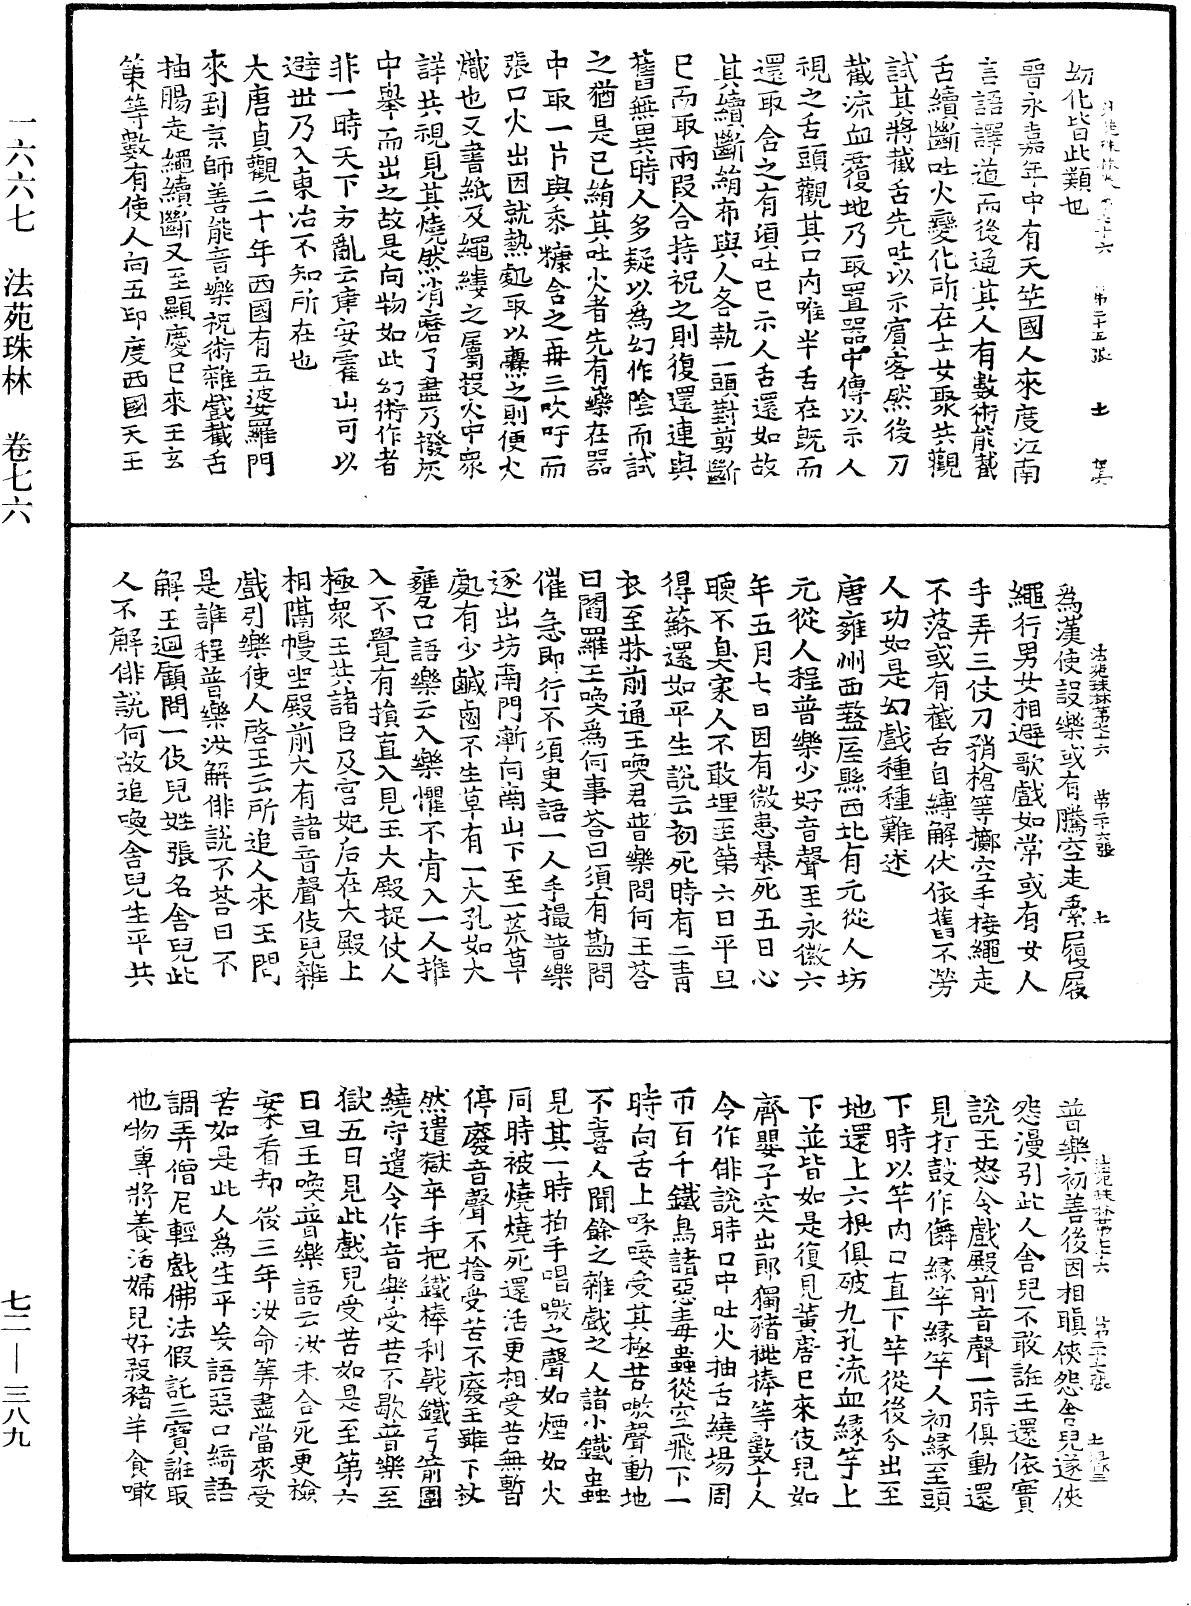 一六六七　法苑珠林　卷七六
七二—三八九
幻化皆此類也
晉永嘉年中有天竺國人來度江南
言語譯道而後通其人有數術能截
舌續斷吐火變化所在士女聚共觀
試其將截舌先吐以示賓客然後刀
截流血覆地乃取置器中傳以示人
視之舌頭觀其口內唯半舌在既而
還取含之有頃吐已示人舌還如故
其續斷絹布與人各執一頭對剪斷
已而取兩段合持祝之則復還連與
舊無異時人多疑以為幻作陰而試
之猶是已絹其吐火者先有藥在器
中取一片與黍糠含之再三吹吁而
張口火出因就熱處取以爨之則便火
熾也又書紙及繩縷之屬投火中衆
詳共視見其燒然消磨了盡乃撥灰
中舉而出之故是向物如此幻術作者
非一時天下方亂云建安霍山可以
避世乃入東冶不知所在也
大唐貞觀二十年西國有五婆羅門
來到京師善能音樂祝術雜戲截舌
抽腸走繩續斷又至顯慶已來王玄
策等數有使人向五印度西國天王
法苑珠林第七十六　第二十六張　土
為漢使設樂或有騰空走索履屐
繩行男女相避歌戲如常或有女人
手弄三仗刀矟槍等擲空手接繩走
不落或有截舌自縛解伏依舊不勞
人功如是幻戲種種難述
唐雍州西盩厔縣西北有元從人坊
元從人程普樂少好音聲至永徽六
年五月七日因有微患暴死五日心
暖不臭家人不敢埋至第六日平旦
得蘇還如平生說云初死時有二青
衣至牀前通王喚君普樂問何王答
曰閻羅王喚為何事答曰須有勘問
催急即行不須更語一人手撮普樂
逐出坊南門漸向南山下至一荒草
處有少鹹鹵不生草有一大孔如大
甕口語樂云入樂懼不肯入一人推
入不覺有損直入見王大殿捉仗人
極衆王共諸臣及宮妃后在大殿上
相隔幔坐殿前大有諸音聲伎兒雜
戲引樂使人啓王云所追人來王問
是誰程普樂汝解俳說不答曰不
解王迴顧問一伎兒姓張名舍兒此
人不解俳說何故追喚舍兒生平共
普樂初善後因相瞋俠怨舍兒遂俠
怨漫引此人舍兒不敢誑王還依實
說王怒令戲殿前音聲一時俱動還
見打鼓作儛緣竿緣竿人初緣至頭
下時以竿內口直下竿從後分出至
地還上六根俱破九孔流血緣竿上
下並皆如是復見黃唇已來伎兒如
齊嬰子突出郎獨豬挑棒等數十人
令作俳說時口中吐火抽舌繞場周
帀百千鐵鳥諸惡毒蟲從空飛下一
時向舌上啄唼受其極苦噭聲動地
不喜人聞餘之雜戲之人諸小鐵蟲
見其一時拍手唱噭之聲如煙如火
同時被燒燒死還活更相受苦無暫
停廢音聲不捨受苦不廢王雖下教
然遣獄卒手把鐵棒利戟鐵弓箭圍
繞守遣令作音樂受苦不歇普樂至
獄五日見此戲兒受苦如是至第六
日旦王喚普樂語云汝未合死更撿
案看却後三年汝命筭盡當來受
苦如是此人為生平妄語惡口綺語
調弄僧尼輕戲佛法假託三寶誑取
他物專將養活婦兒好殺豬羊食噉